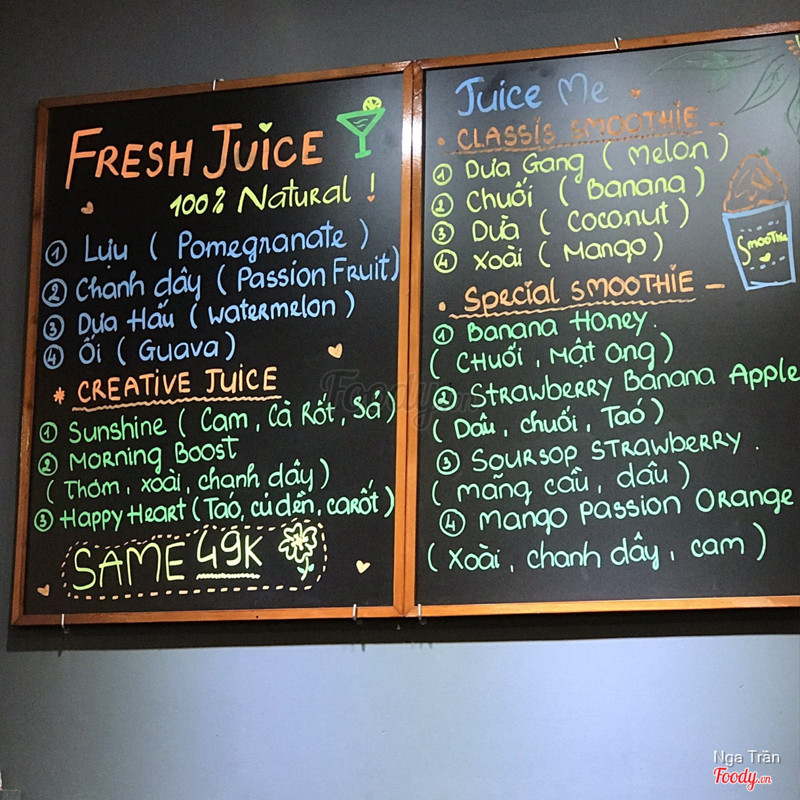 FRESH JUICE
100% Natural !
① Lựu ( Pomegranate )
② Chanh dây ( Passion Fruit )
③ Dưa Hấu ( Watermelon )
④ Ổi ( Guava )
* CREATIVE JUICE
① Sunshine ( Cam , Cà Rốt , Sả )
② Morning Boost
( Thơm , xoài , chanh dây )
③ Happy Heart ( Táo , củ dền , carốt )
SAME 49K
Juice Me
• CLASSIS SMOOTHIE –
① Dưa Gang ( Melon )
② Chuối ( Banana )
③ Dừa ( Coconut )
④ Xoài ( Mango )
• Special SMOOTHIE –
① Banana Honey .
( Chuối , Mật Ong )
② Strawberry Banana Apple
( Dâu , chuối , Táo )
③ Soursop Strawberry .
( mãng cầu , dâu )
④ Mango Passion Orange
( Xoài , chanh dây , cam )
Smoothie
Foody.vn
Nga Trần
Foody.vn